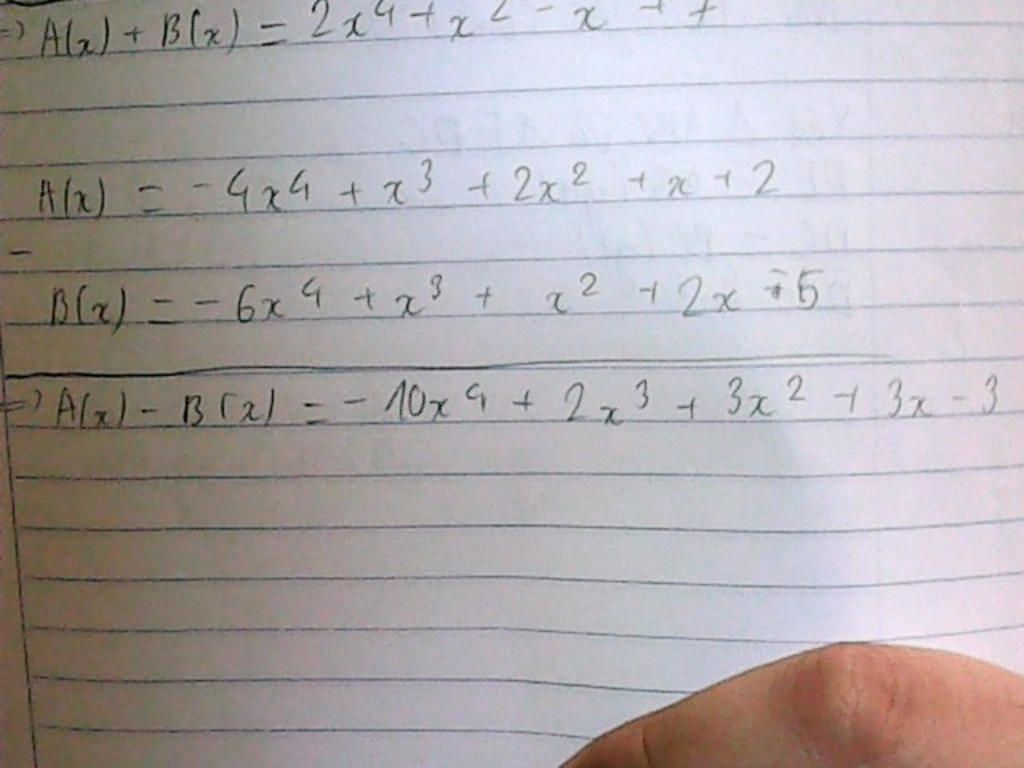 =) A(x) + B(x) = 2x⁴ + x² - x + 7
A(x) = - 4x⁴ + x³ + 2x² + x + 2
-
B(x) = - 6x⁴ + x³ + x² + 2x - 5
=) A(x) - B(x) = - 10x⁴ + 2x³ + 3x² + 3x - 3